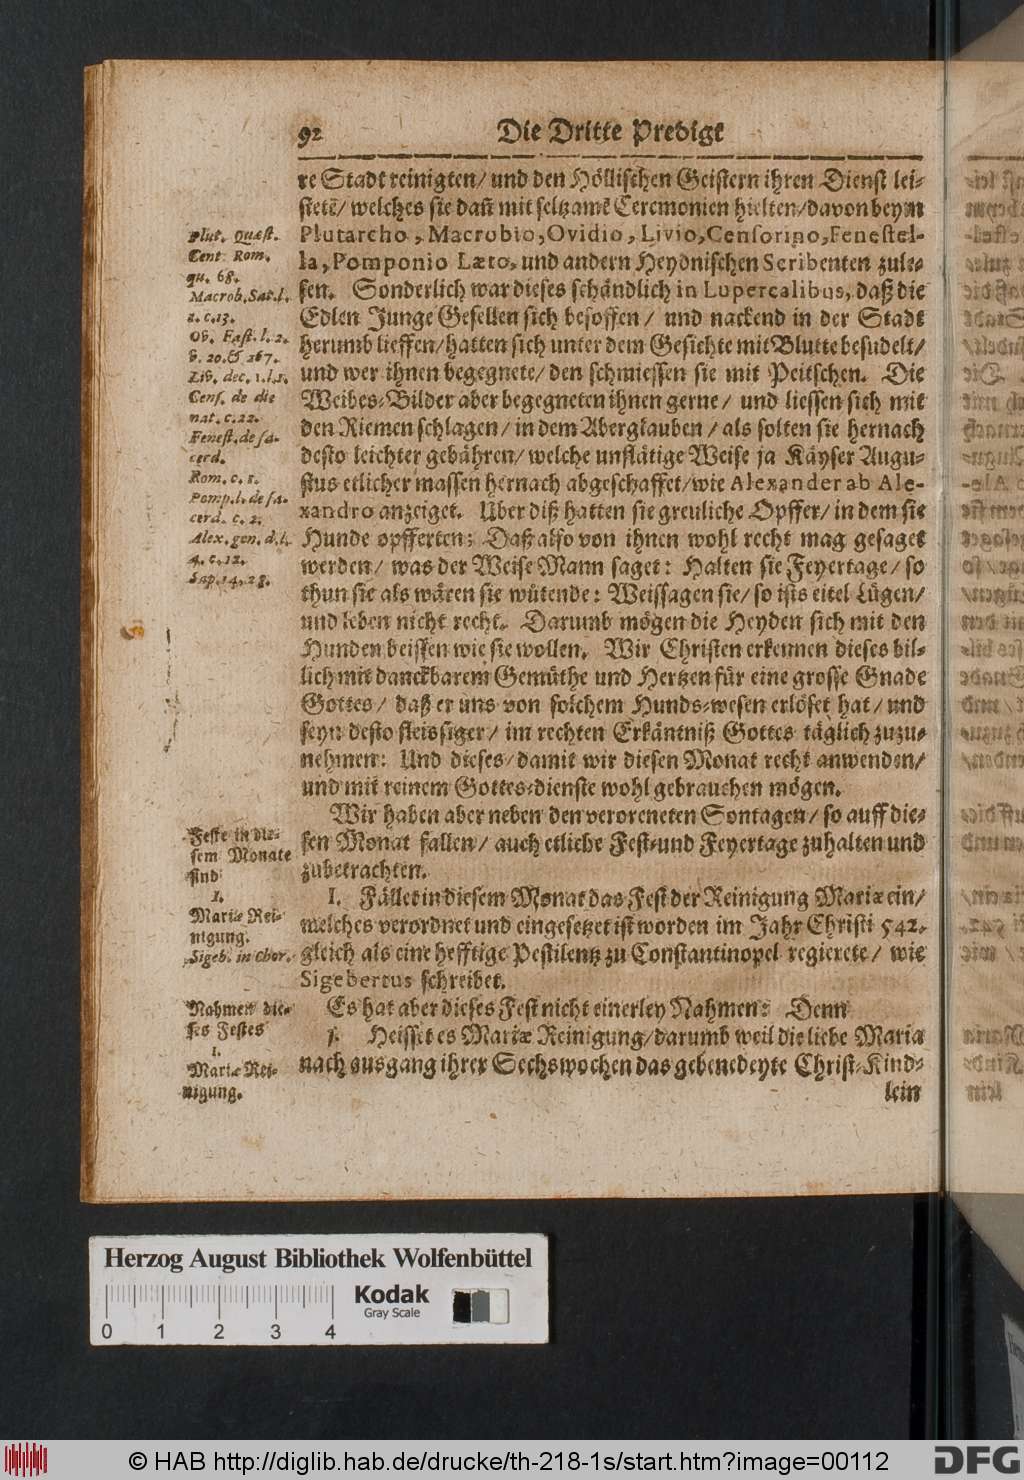 92 Die Dritte Predigt
re Stadt reinigten/ und den Höllischen Geistern ihren Dienst lei-
stetē/ welches sie dañ mit seltzamē Ceremonien hielten/ davon beym
Plutarcho, Macrobio, Ovidio, Livio, Censorino, Fenestel-
la, Pomponio Læto, und andern Heydnischen Scribenten zule-
sen. Sonderlich war dieses schändlich in Lupercalibus, daß die
Edlen Junge Gesellen sich besoffen/ und nackend in der Stadt
herumb lieffen/ hatten sich unter dem Gesichte mit Blutte besudelt/
und wer ihnen begegnete/ den schmiessen sie mit Peitschen. Die
Weibes-Bilder aber begegneten ihnen gerne/ und liessen sich mit
den Riemen schlagen/ in dem Aberglauben/ als solten sie hernach
desto leichter gebähren/ welche unflätige Weise ja Käyser Augu-
stus etlicher massen hernach abgeschaffet/ wie Alexander ab Ale-
xandro anzeiget. Uber diß hatten sie greuliche Opffer/ in dem sie
Hunde opfferten: Daß also von ihnen wohl recht mag gesaget
werden/ was der Weise Mann saget: Halten sie Feyertage/ so
thun sie als wären sie wütende: Weissagen sie/ so ists eitel Lügen/
und leben nicht recht. Darumb mögen die Heyden sich mit den
Hunden beissen wie sie wollen. Wir Christen erkennen dieses bil-
lich mit danckbarem Gemüthe und Hertzen für eine grosse Gnade
Gottes/ daß er uns von solchem Hunds-wesen erlöset hat/ und
seyn desto fleissiger/ im rechten Erkäntniß Gottes täglich zuzu-
nehmen: Und dieses/ damit wir diesen Monat recht anwenden/
und mit reinem Gottes-dienste wohl gebrauchen mögen.
Wir haben aber neben den verorcneten Sontagen/ so auff die-
sen Monat fallen/ auch etliche Fest-und Feyertage zuhalten und
zubetrachten.
I. Fället in diesem Monat das Fest der Reinigung Mariæ ein/
welches verordnet und eingesetzet ist worden im Jahr Christi 542.
gleich als eine hefftige Pestilentz zu Constantinopel regierete/ wie
Sigebertus schreibet.
Es hat aber dieses Fest nicht einerley Nahmen: Denn
1. Heisset es Mariæ Reinigung/ darumb weil die liebe Maria
nach ausgang ihrer Sechswochen das gebenedeyte Christ-Kind-
lein
Plut. Quæst.
Cent. Rom.
qu. 68.
Macrob. Sat. l.
1. c. 13.
Ov. Fast. l. 2.
v. 20. & 267.
Liv. dec. 1. l. 1.
Cens. de die
nat. c. 22.
Fenest. de sa-
cerd.
Rom. c. 1.
Pomp. l. de sa-
cerd. c. 2.
Alex. gen. d. l.
4. c. 12.
Sap. 14. 28.
Feste in die-
sem Monate
sind
I.
Mariæ Rei-
nigung.
Sigeb. in Chor.
Nahmen die-
ses Festes
1.
Mariæ Rei-
nigung.
Herzog August Bibliothek Wolfenbüttel
Kodak
Gray Scale
0 1 2 3 4
© HAB http://diglib.hab.de/drucke/th-218-1s/start.htm?image=00112
DFG